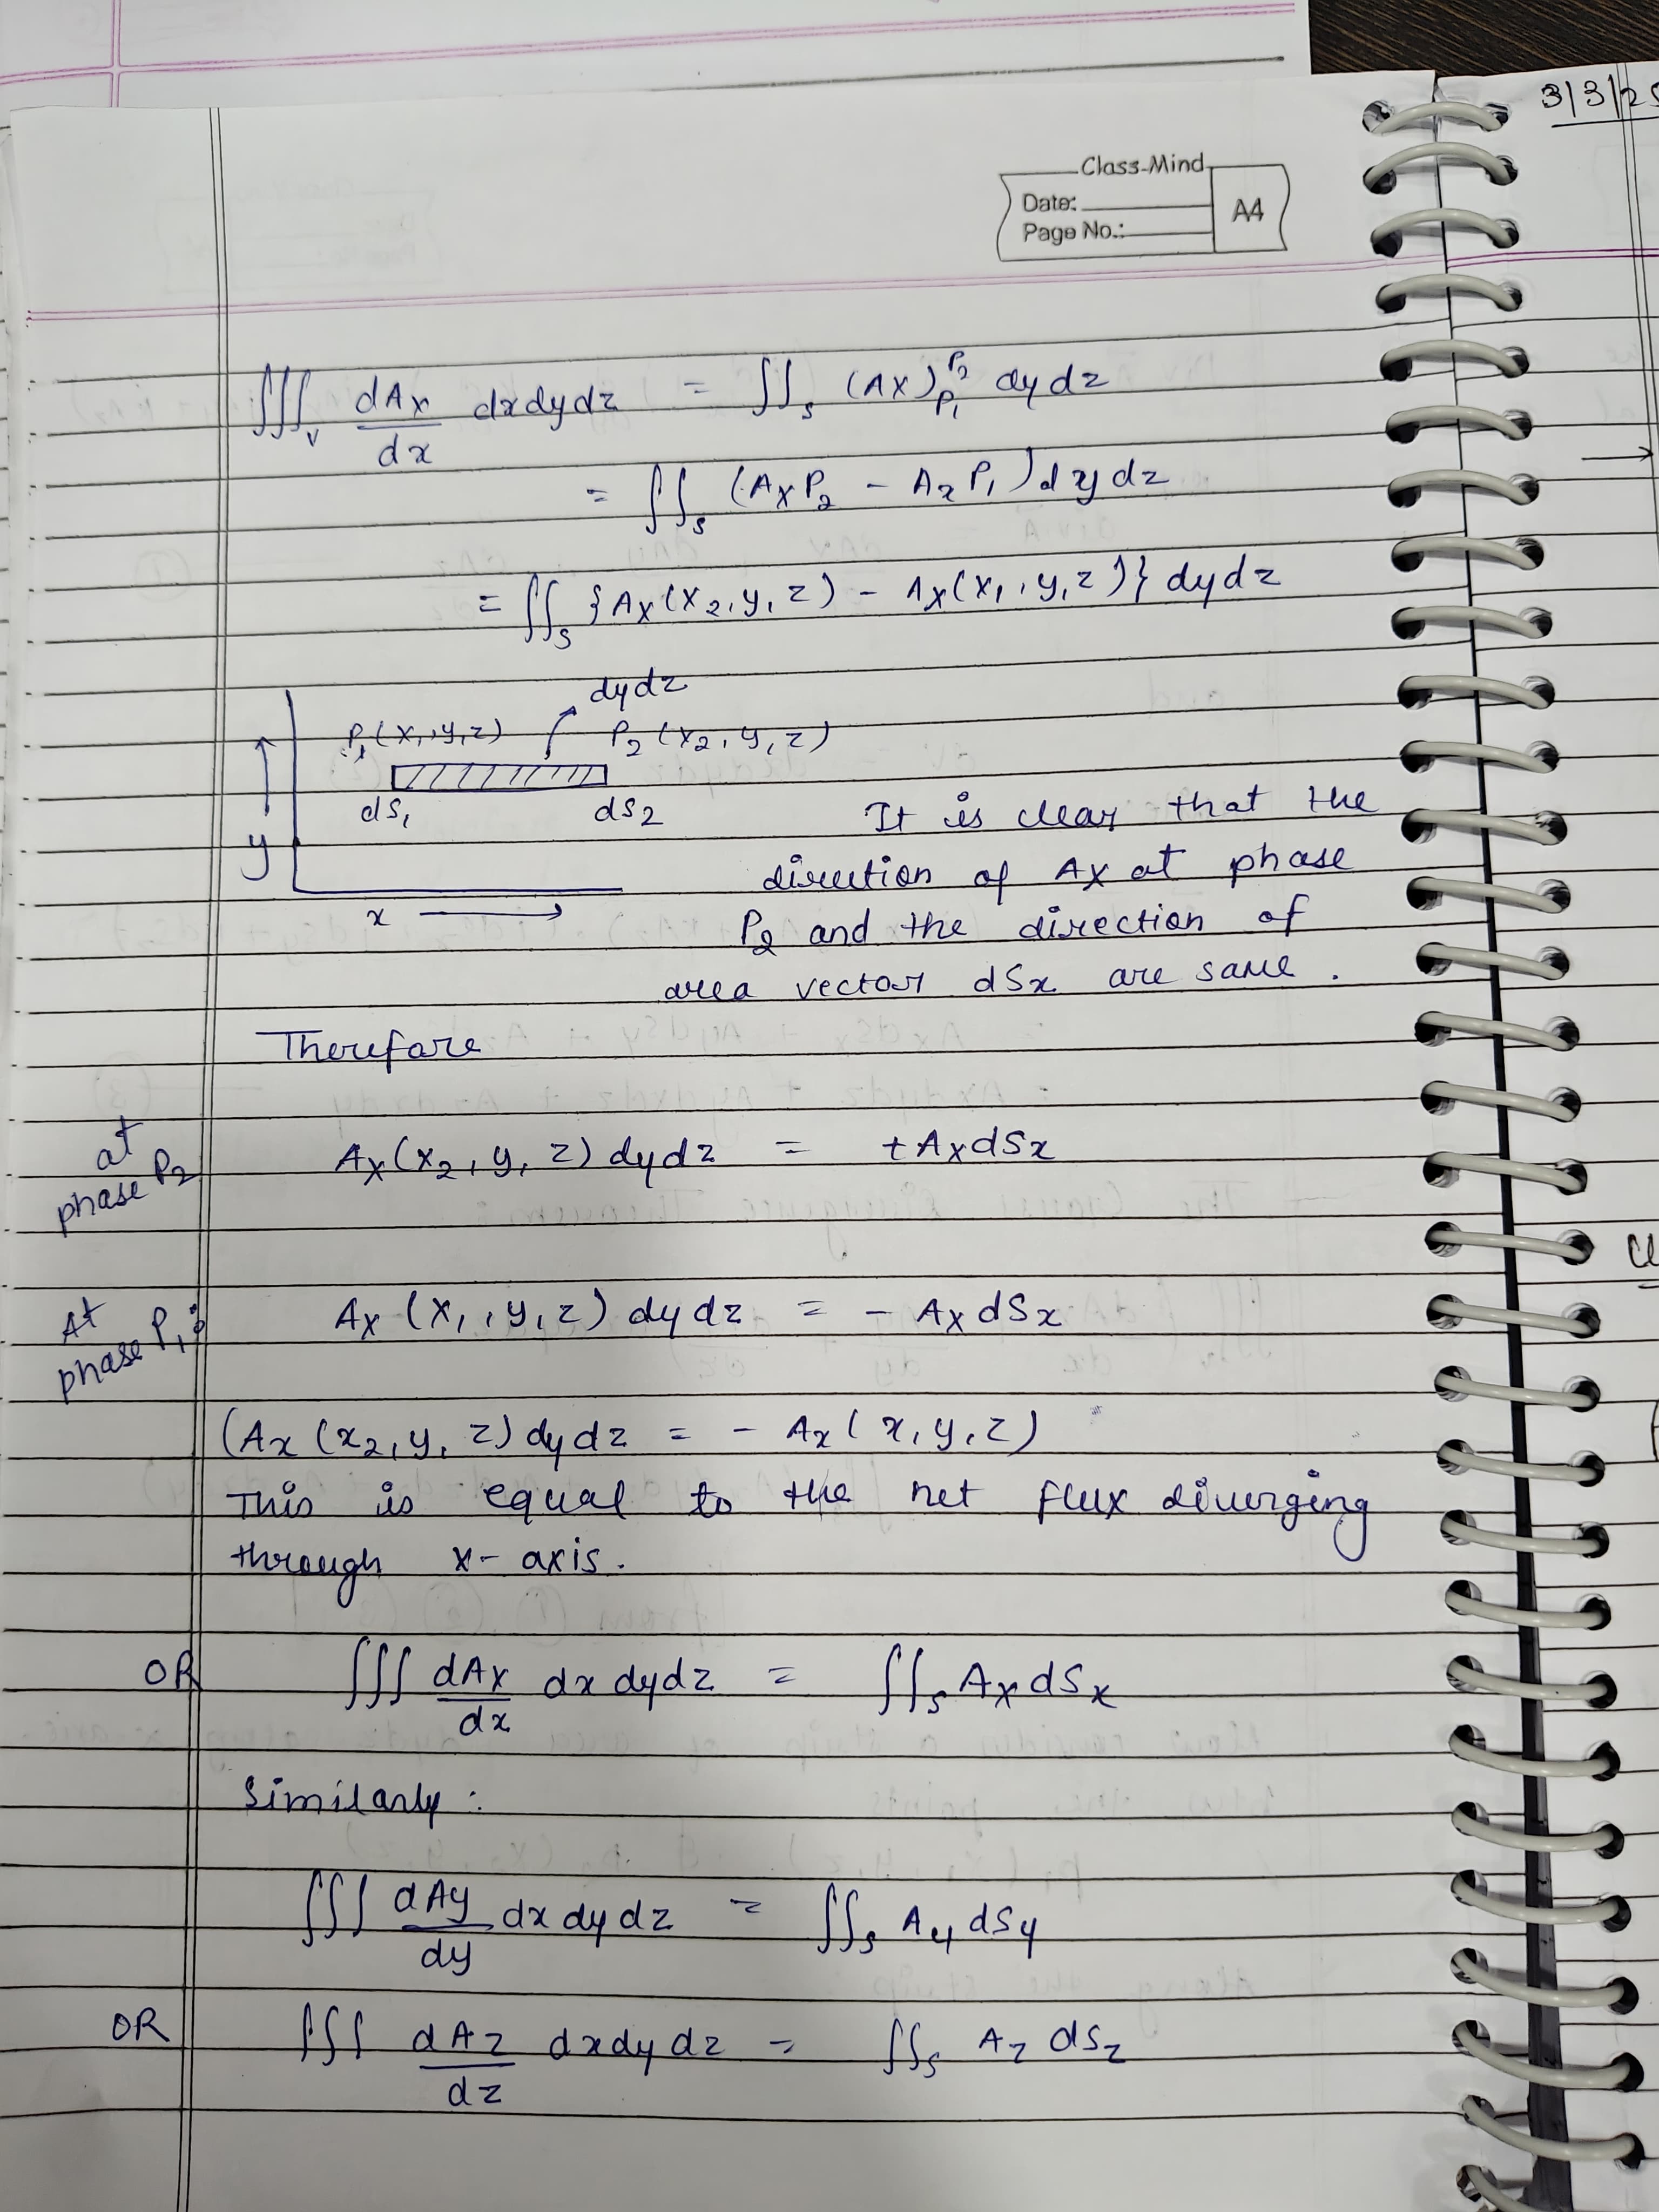 3/3/25
Class-Mind
Date:
Page No.:
A4
∭_V dAx/dx dxdydz = ∬_S (Ax)_{P₁}^{P₂} dydz
= ∬_S (AxP₂ - AxP₁) dydz
= ∬_S {Ax(x₂, y, z) - Ax(x₁, y, z)} dydz
dydz
P₁(x₁, y, z) P₂(x₂, y, z)
dS₁ dS₂
y
x
It is clear that the
direction of Ax at phase
P₂ and the direction of
area vector dSx are same.
Therefore
at phase P₂ Ax(x₂, y, z) dydz = +AxdSx
At phase P₁: Ax(x₁, y, z) dydz = - AxdSx
(Ax(x₂, y, z) dydz = - Ax(x, y, z)
This is equal to the net flux diverging
through x-axis.
OR ∭ dAx/dx dx dydz = ∬_S Ax dSx
Similarly:
∭ dAy/dy dx dy dz = ∬_S Ay dSy
OR ∭ dAz/dz dxdydz = ∬_S Az dSz